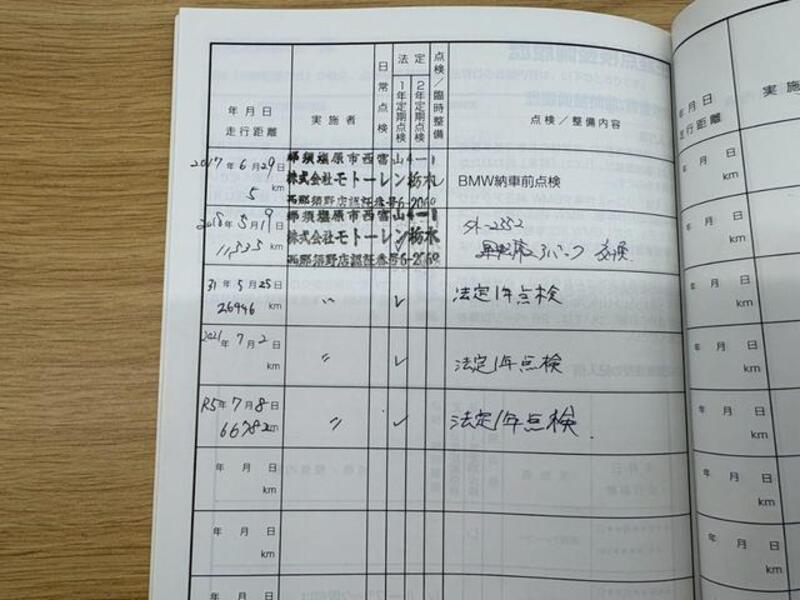 年月日
走行距離
実施者
日常点検
法定
1年定期点検
2年定期点検
点検/臨時整備
点検/整備内容
2017年6月29日
5 km
那須塩原市西富山4-1
株式会社モトーレン栃木
西那須野店認証番号6-2060
BMW納車前点検
2018年5月19日
11,535 km
那須塩原市西富山4-1
株式会社モトーレン栃木
西那須野店認証番号6-2060
交換
31年5月25日
26946 km
〃
✓
法定1年点検
2021年7月2日
km
〃
✓
法定1年点検
R5年7月8日
66782 km
〃
✓
法定1年点検.
年月日
km
年月日
km
年月日
年月日
走行距離
実施
年月日
km
年月日
km
年月日
km
年月日
km
年月日
km
年月日
km
年月日
km